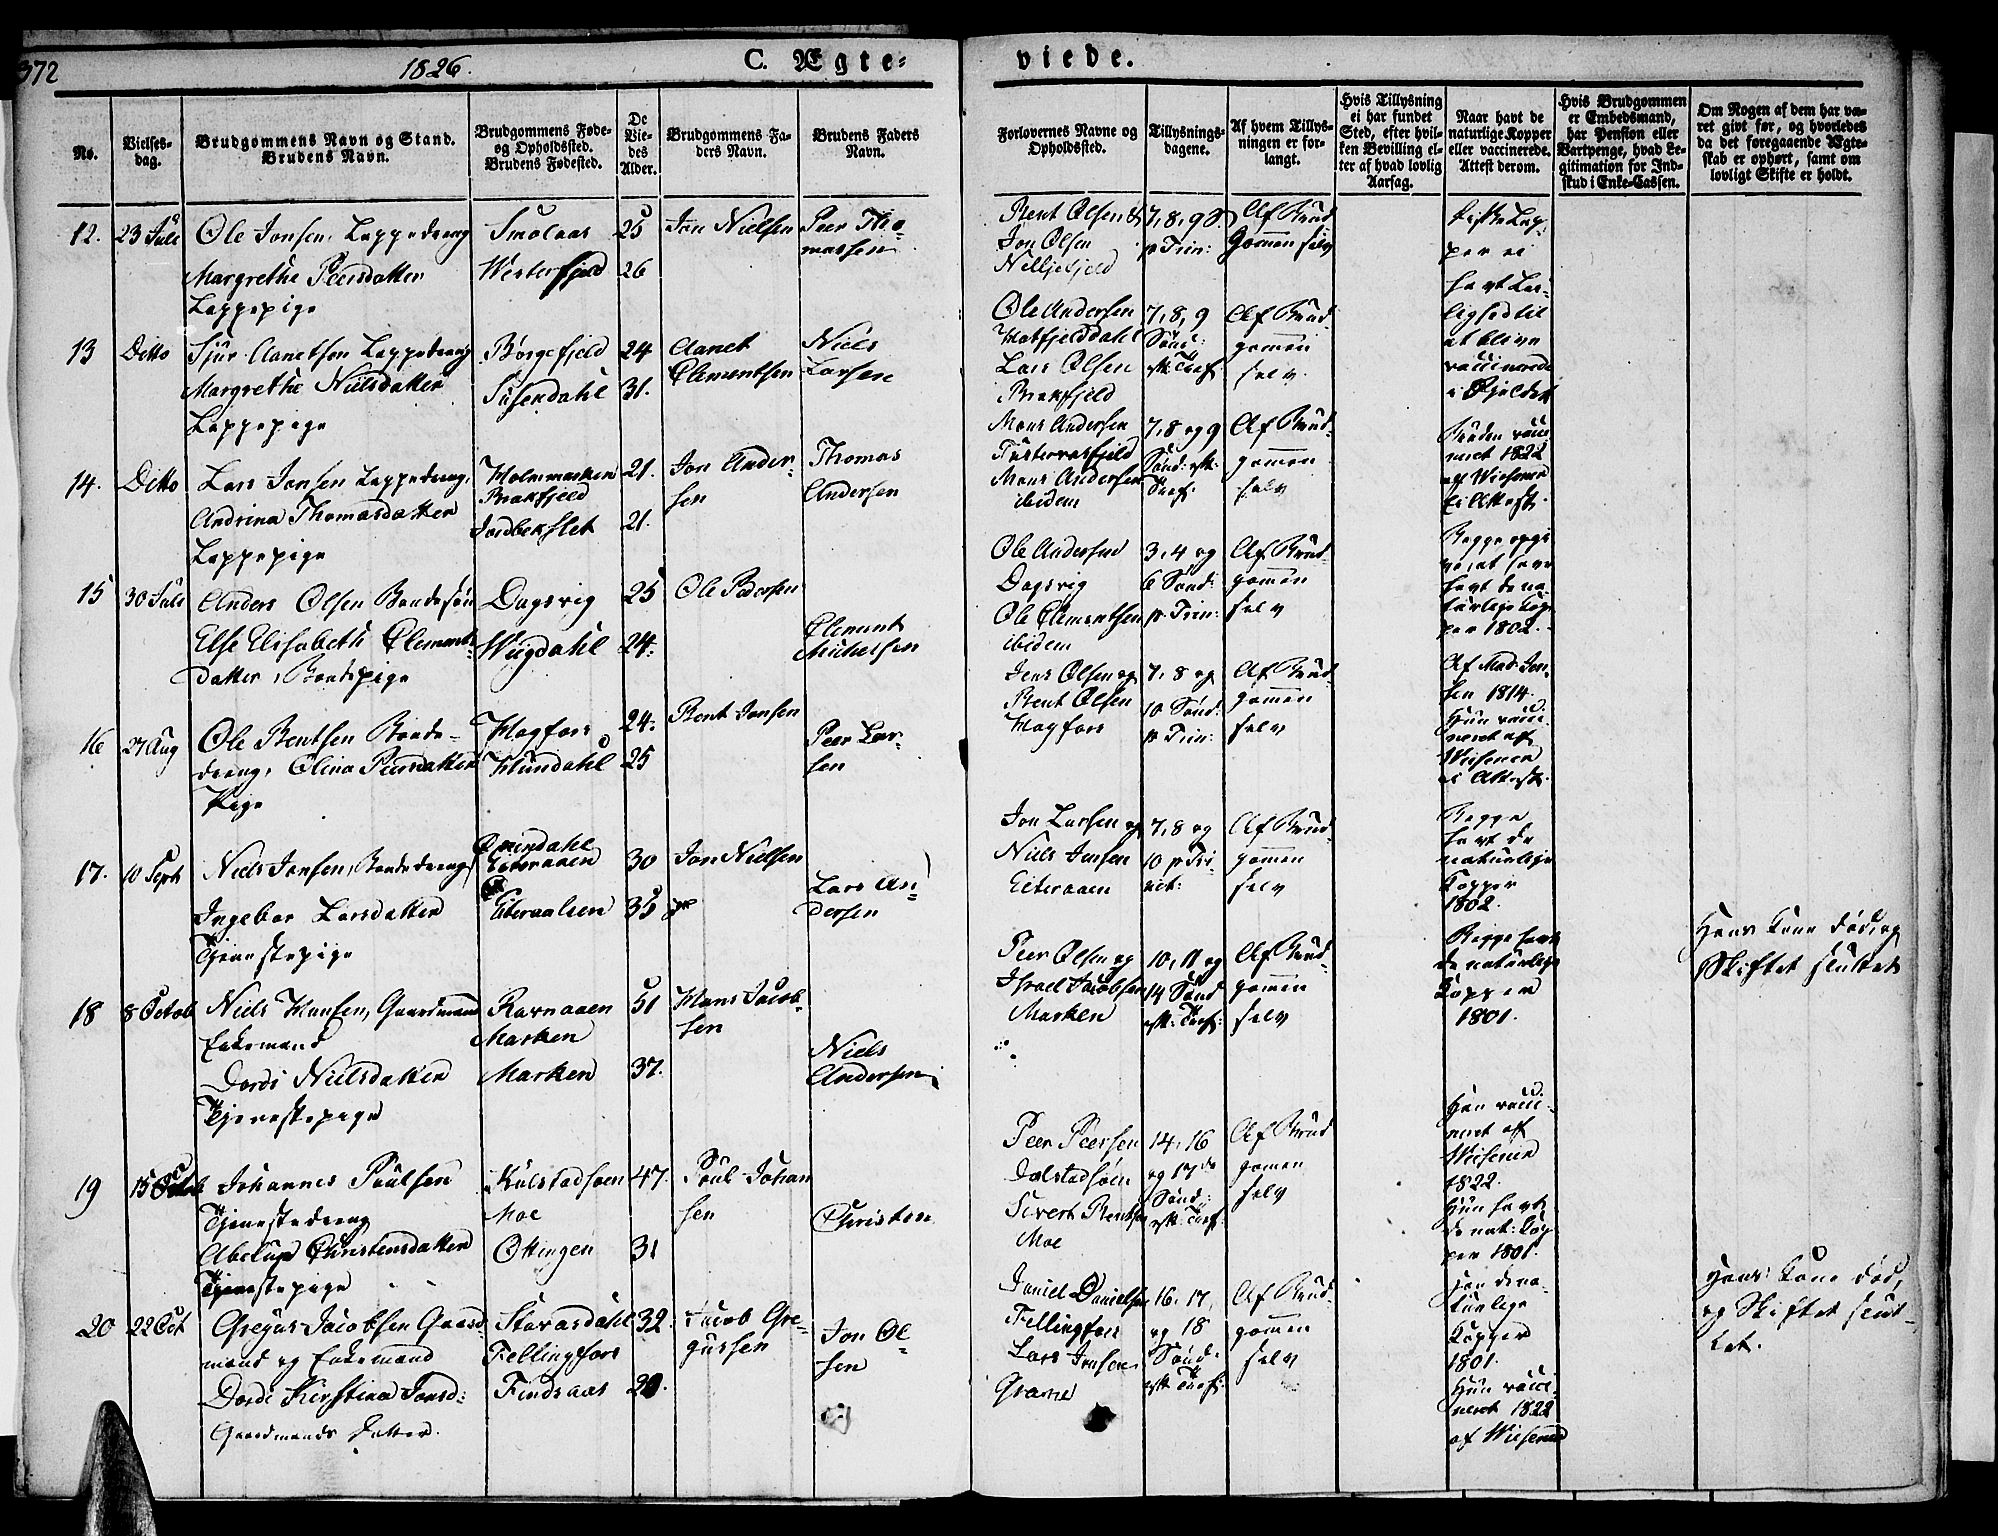 372
1826.
C. Ægte-
viede.
No.
Vielses-
dag.
Brudgommens Navn og Stand.
Brudens Navn.
Brudgommens Føde-
og Opholdssted.
Brudens Fødested.
De
Vie-
des
Alder.
Brudgommens Fa-
ders Navn.
Brudens Faders
Navn.
Forlovernes Navne og
Opholdssted.
Tillysnings-
dagene.
Af hvem Tillys-
ningen er for-
langt.
Hvis Tillysning
ei har fundet
Sted, efter hvil-
ken Bevilling el-
ler af hvad lovlig
Aarsag.
Naar havt de
naturlige Kopper
eller vaccinerede.
Attest derom.
Hvis Brudgommen
er Embedsmand,
har Pension eller
Vartpenge, hvad Le-
gitimation for Ind-
skud i Enke-Cassen.
Om Nogen af dem har væ-
ret givt før, og hvorledes
da det foregaaende Ægte-
skab er ophørt, samt om
lovligt Skifte er holdt.
12. 23 Juli
Ole Jonsen, Lappedreng
Margrethe Peersdatter
Lappepige
Smolaas
Westerfjeld
25
26
Jon Nielsen
Peer Tho-
massen
Bent Olsen &
Jon Olsen
7, 8, 9 S
p Trin:
Af Brud
gomen selv
13 Ditto
Sjur Aanetsen Lappedreng
Margrethe Nielsdatter
Lappepige
Børgefjeld
Susendahl
24
31.
Aanet
Clemetsen
Niels
Larsen
Ole Andersen
Hatfjelddahl
Lars Olsen
Brakfjeld
7, 8, 9
Sönd:
eft: Tref.
Af Brud-
gomen
selv
vaccinerede
i Fjeldet
14. Ditto
Lars Jonsen Lappedreng,
Andrina Thomasdatter
Lappepige
Holmmarken
Brakfjeld
21.
21.
Jon Ander-
sen
Thomas
Andersen
Mons Andersen
Mons Andersen
ibidem
7, 8 og 9
Sönd: eft:
Tref:
Af Brud-
gomen
selv
Bruden vacci
neret 1822
af Wiesener
Ei Attest.
15 30 Juli
Anders Olsen Bondesön
Else Elisabeth Clements-
datter, Bondepige
Dagsvig
Wiigdahl
25
24.
Ole Pedersen
Clement
Michelsen
Ole Andersen
Dagsvig
Ole Clementsen
ibidem
3, 4 og
6 Sönd:
p. Trin:
Af Brud
gomen
selv
havt de na-
turlige Kop
per 1802.
16 27 Aug
Ole Bentsen Bonde-
dreng, Olina Peersdatter
Pige
Hagfors
24.
25
Bent Jonsen
Peer Lar-
sen
Jens Olsen og
Bent Olsen
Hagfors
7, 8 og
10 Sönd:
p Trin:
Af Brud-
gomen
selv
Af Mad: Jen-
sen 1814.
Hun vacci
neret af
Wiesener
ei Attest.
17. 10 Sept
Niels Jonsen, Bondedreng
Ingebor Larsdatter
Tjenestepige
Eiteraaen
30
35
Jon Nielsen
Lars An-
dersen
Jon Larsen og
Niels Jensen
Eiteraaen
7, 8 og
10 p Tri
nit:
Af Brud-
gomen
selv
Begge
havt de
naturlige
Kopper
1802.
18 8 Octob
Niels Hansen, Gaardmand
Enkemand
Dordi Nielsdatter
Tjenestepige
Ravnaaen
Marken
Marken
51
37.
Hans Jacob-
sen
Niels
Andersen
Peer Olsen og
Israel Jacobsen
Marken
10, 11 og
14 Sönd
eft: Tref:
Af Brud-
gomen
selv
Begge havt
de naturlige
Kopper
1801.
Hans Kone død, og
Skiftet sluttet
19 15 Octob
Johannes Poulsen
Tjenestedreng
Abelup Christensdatter
Tjenestepige
Kulstadsøen
Moe
Ottingen
47.
31
Poul Johan
sen
Christen
Peer Peersen
Dolstadsöen
Sivert Bentsen
Moe
14, 16
og 17de
Sönd:
eft: Tref:
Af Brud
gomen
selv
Han vacci-
neret af
Wiesener
1822.
Hun havt
de nat: Kop
per 1801.
20 22 Oct
Gregus Jacobsen Gaard
mand og Enkemand
Dordi Kirstina Jonsd-
Gaardmands Datter.
Stavasdahl
Fellingfors
Findsaas
32
20.
Jacob Gre-
gussen
Jon Ol-
sen
Daniel Danielsen
Fellingfors
Lars Jonsen
Grane
16. 17,
og 18
Sönd.
eft Tref:
Af Brud-
gomen
selv
han de na-
turlige
Kopper
1801.
Hun vacci
neret 1822
af Wiesener
Hans Kone død,
og Skiftet slut-
tet.